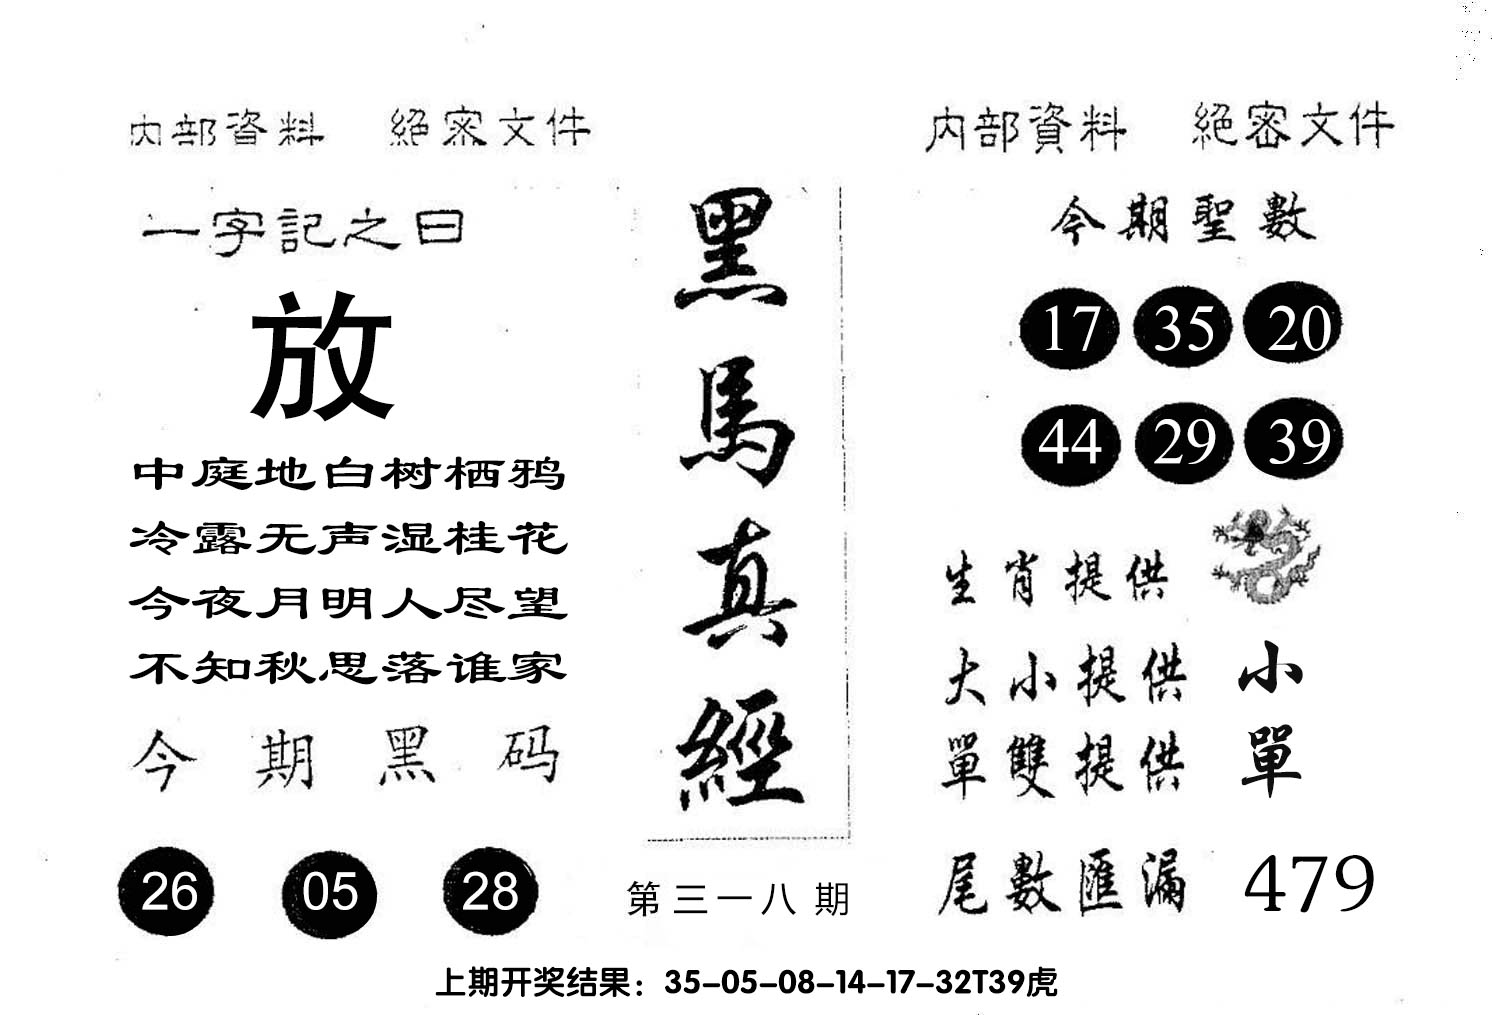 内部資料 絕密文件
一字記之曰
放
中庭地白树栖鸦
冷露无声湿桂花
今夜月明人尽望
不知秋思落谁家
今期黑码
26 05 28
黑馬真經
第三一八期
内部資料 絕密文件
今期聖數
17 35 20
44 29 39
生肖提供
大小提供 小
單雙提供 單
尾數匯漏 479
上期开奖结果：35-05-08-14-17-32T39虎